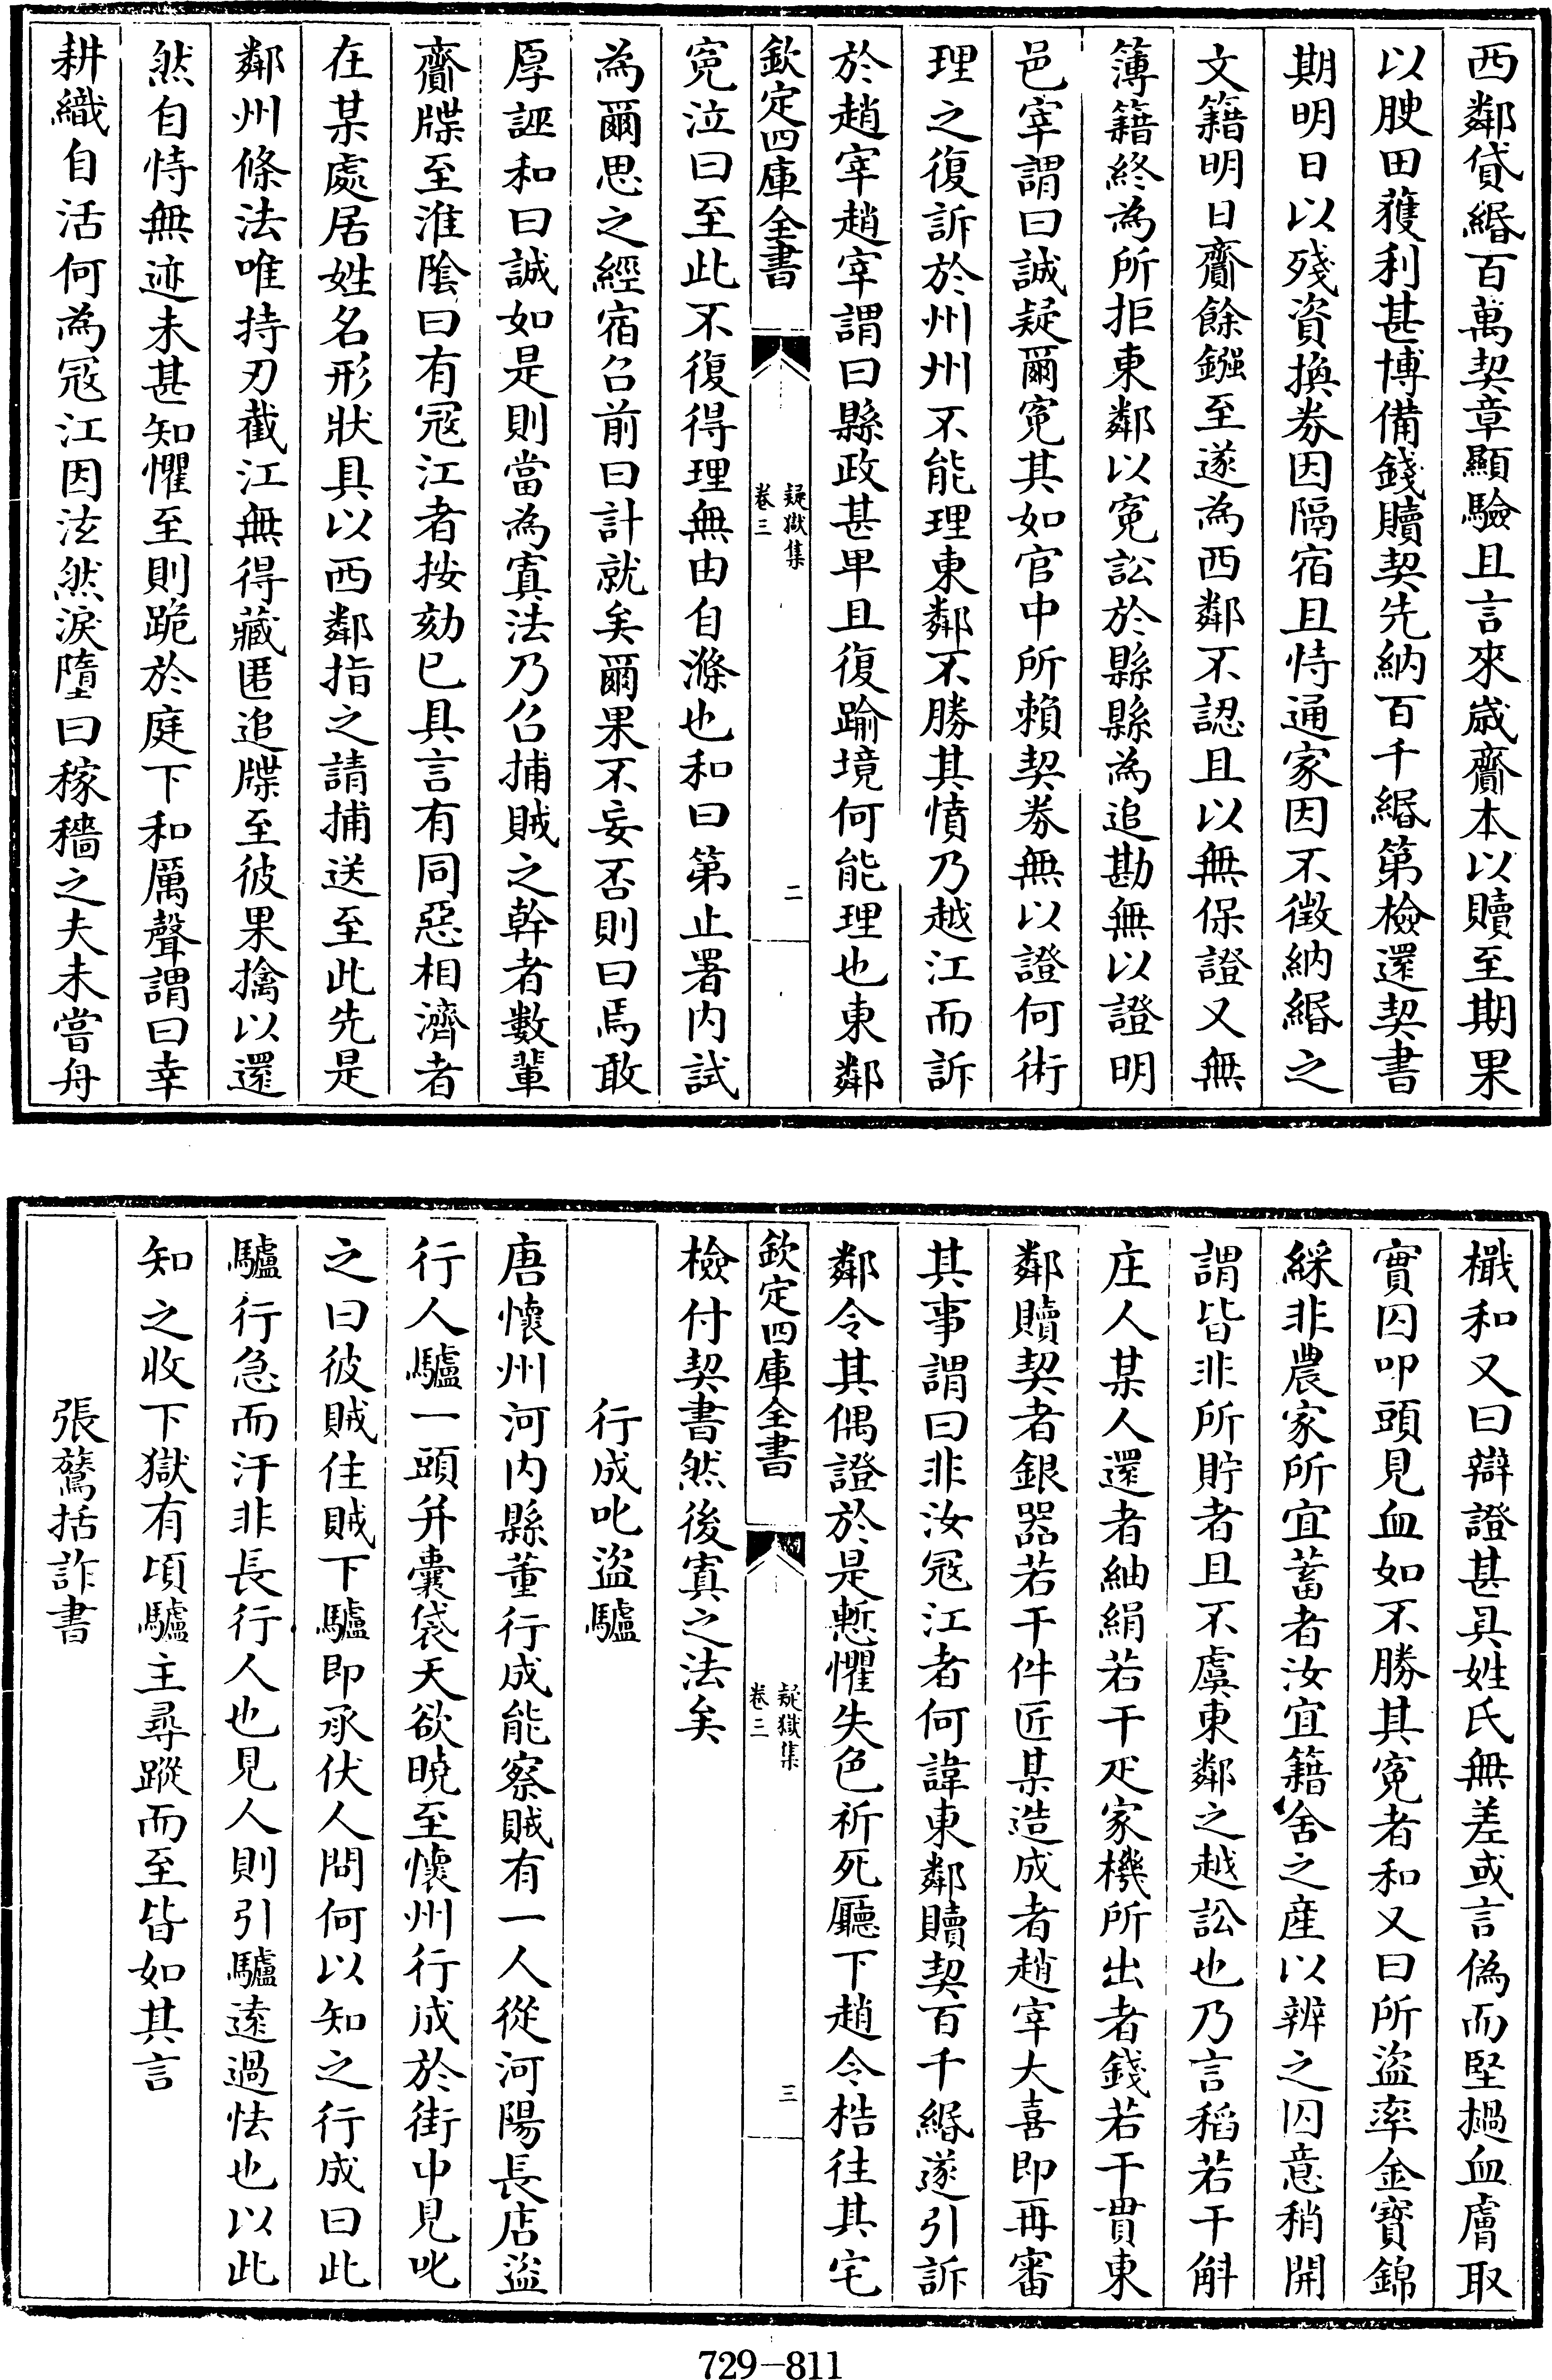 西鄰貸緡百萬契章顯驗且言來歲齎本以贖至期果
以腴田獲利甚博備錢贖契先納百千緡第檢還契書
期明日以殘資換券因隔宿且恃通家因不徴納緡之
文籍明日齎餘鏹至遂為西鄰不認且以無保證又無
簿籍終為所拒東鄰以寃訟於縣縣為追勘無以證明
邑宰謂曰誠疑爾寃其如官中所賴契券無以證何術
理之復訴於州州不能理東鄰不勝其憤乃越江而訴
於趙宰趙宰謂曰縣政甚卑且復踰境何能理也東鄰
欽定四庫全書
疑獄集
卷三
二
寃泣曰至此不復得理無由自滌也和曰第止署内試
為爾思之經宿召前曰計就矣爾果不妄否則曰焉敢
厚誣和曰誠如是則當為寘法乃召捕賊之幹者數輩
齎牒至淮隂曰有冦江者按劾已具言有同惡相濟者
在某處居姓名形狀具以西鄰指之請捕送至此先是
鄰州條法唯持刃截江無得藏匿追牒至彼果擒以還
然自恃無迹未甚知懼至則跪於庭下和厲聲謂曰幸
耕織自活何為冦江因泫然淚墮曰稼穡之夫未嘗舟
檝和又曰辯證甚具姓氏無差或言偽而堅撾血膚取
實囚叩頭見血如不勝其寃者和又曰所盜率金寳錦
綵非農家所宜蓄者汝宜籍舍之産以辨之囚意稍開
謂皆非所貯者且不虞東鄰之越訟也乃言稻若干斛
庄人某人還者紬絹若干疋家機所出者錢若干貫東
鄰贖契者銀器若干件匠某造成者趙宰大喜即再審
其事謂曰非汝冦江者何諱東鄰贖契百千緡遂引訴
鄰令其偶證於是慙懼失色祈死廳下趙令梏往其宅
欽定四庫全書
疑獄集
卷三
三
檢付契書然後寘之法矣
行成叱盜驢
唐懷州河内縣董行成能察賊有一人從河陽長店盜
行人驢一頭并囊袋天欲曉至懷州行成於街中見叱
之曰彼賊住賊下驢即承伏人問何以知之行成曰此
驢行急而汗非長行人也見人則引驢逺過怯也以此
知之收下獄有頃驢主尋蹤而至皆如其言
張鷟括詐書
729-811